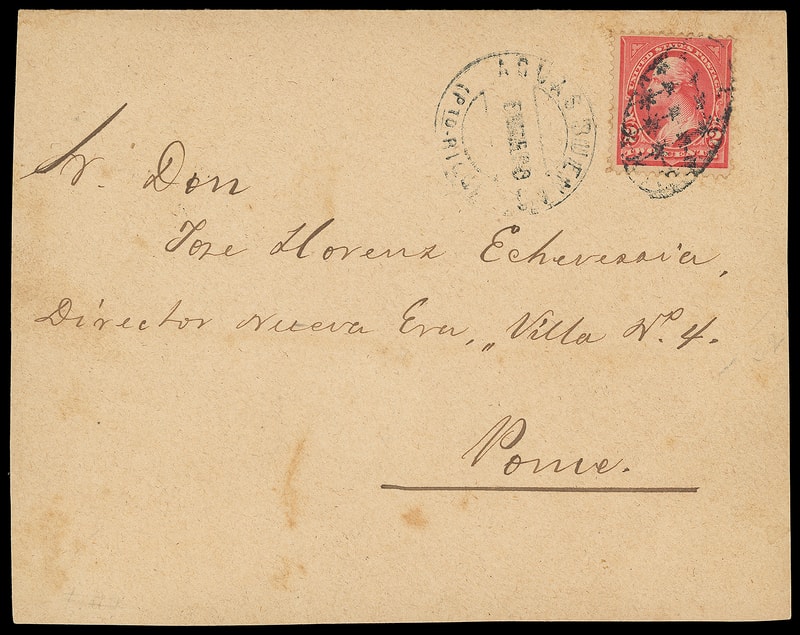 AGUAS BUENAS
(PTO-RICO)
UNITED STATES POSTAGE
Sr. Don
Jose Llorenz Echeverria,
Director Nueva Era, „Villa Nº. 4.
Ponce.